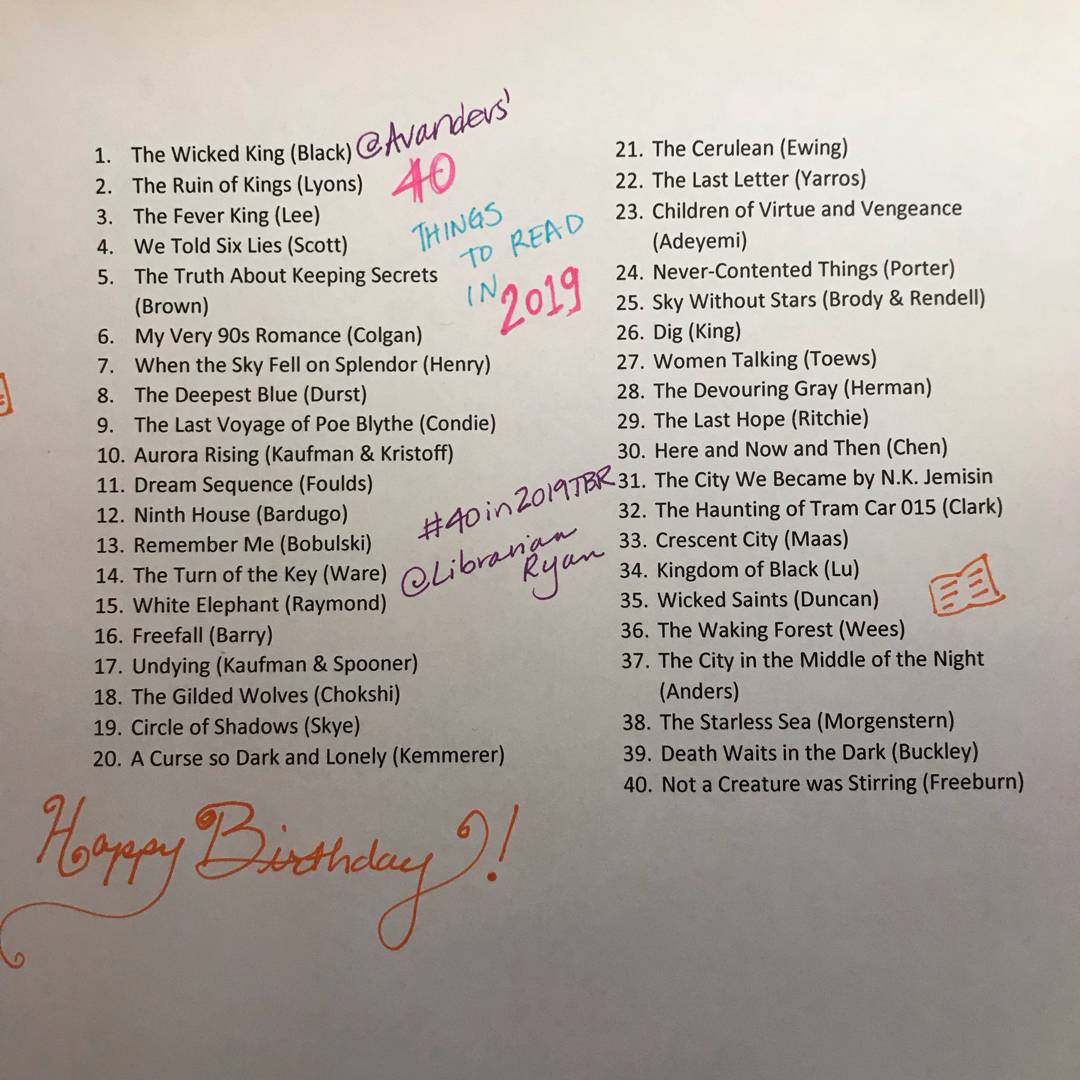 1. The Wicked King (Black)
2. The Ruin of Kings (Lyons)
3. The Fever King (Lee)
4. We Told Six Lies (Scott)
5. The Truth About Keeping Secrets
(Brown)
6. My Very 90s Romance (Colgan)
7. When the Sky Fell on Splendor (Henry)
8. The Deepest Blue (Durst)
9. The Last Voyage of Poe Blythe (Condie)
10. Aurora Rising (Kaufman & Kristoff)
11. Dream Sequence (Foulds)
12. Ninth House (Bardugo)
13. Remember Me (Bobulski)
14. The Turn of the Key (Ware)
15. White Elephant (Raymond)
16. Freefall (Barry)
17. Undying (Kaufman & Spooner)
18. The Gilded Wolves (Chokshi)
19. Circle of Shadows (Skye)
20. A Curse so Dark and Lonely (Kemmerer)
@Avanders'
40
THINGS
TO READ
IN 2019
#40in2019TBR
@Librarian
Ryan
21. The Cerulean (Ewing)
22. The Last Letter (Yarros)
23. Children of Virtue and Vengeance
(Adeyemi)
24. Never-Contented Things (Porter)
25. Sky Without Stars (Brody & Rendell)
26. Dig (King)
27. Women Talking (Toews)
28. The Devouring Gray (Herman)
29. The Last Hope (Ritchie)
30. Here and Now and Then (Chen)
31. The City We Became by N.K. Jemisin
32. The Haunting of Tram Car 015 (Clark)
33. Crescent City (Maas)
34. Kingdom of Black (Lu)
35. Wicked Saints (Duncan)
36. The Waking Forest (Wees)
37. The City in the Middle of the Night
(Anders)
38. The Starless Sea (Morgenstern)
39. Death Waits in the Dark (Buckley)
40. Not a Creature was Stirring (Freeburn)
Happy Birthday!